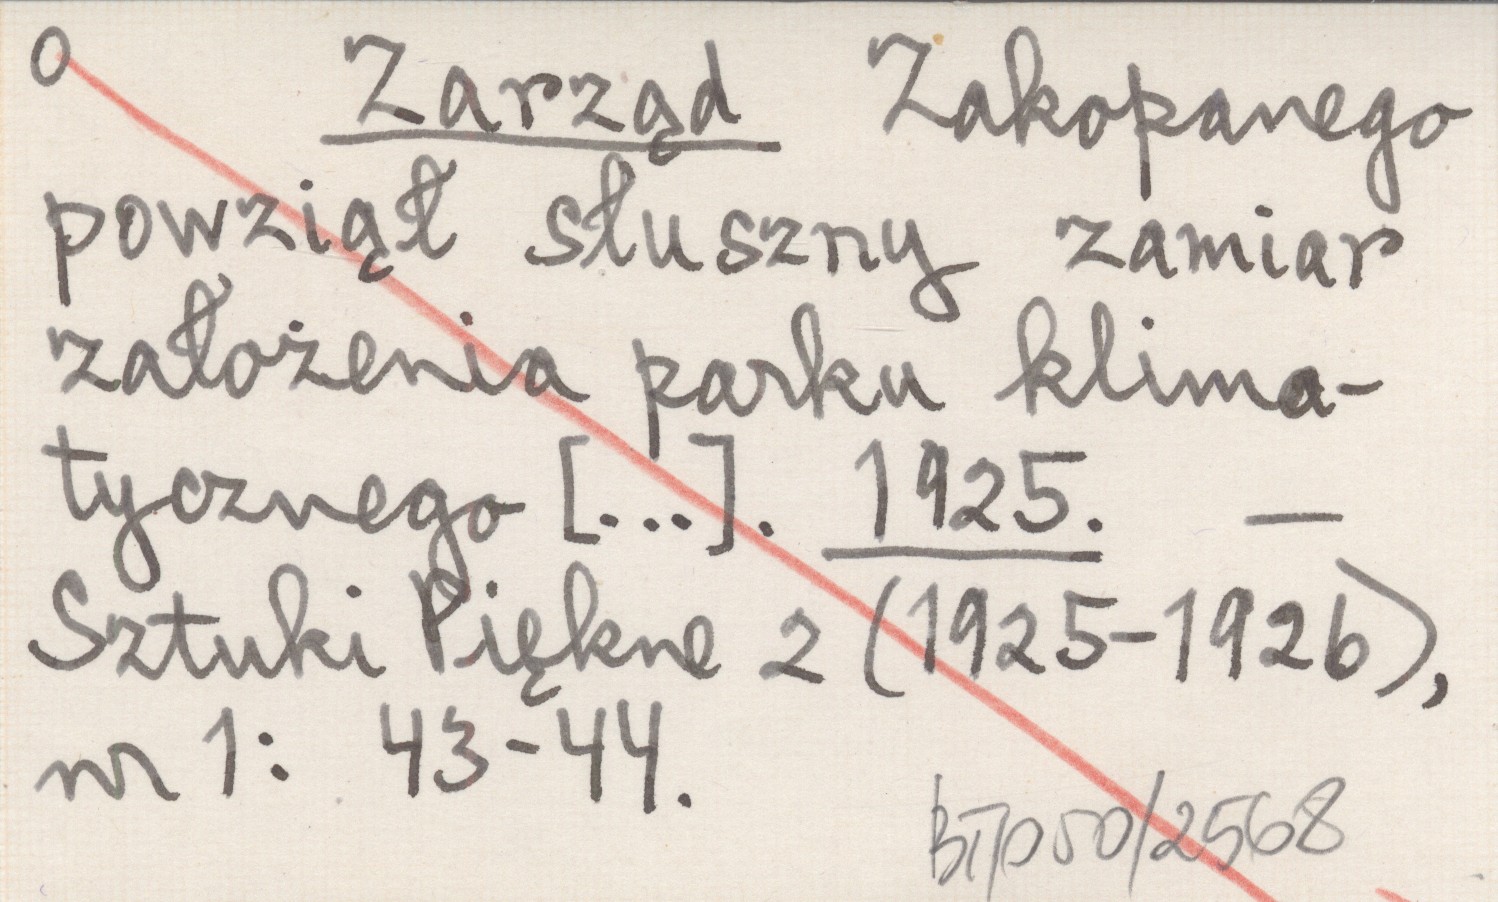 0 Zarząd Zakopanego
powziął słuszny zamiar
założenia parku klima-
tycznego [...]. 1925. —
Sztuki Piękne 2 (1925-1926),
nr 1: 43-44.
BTP 50/2568